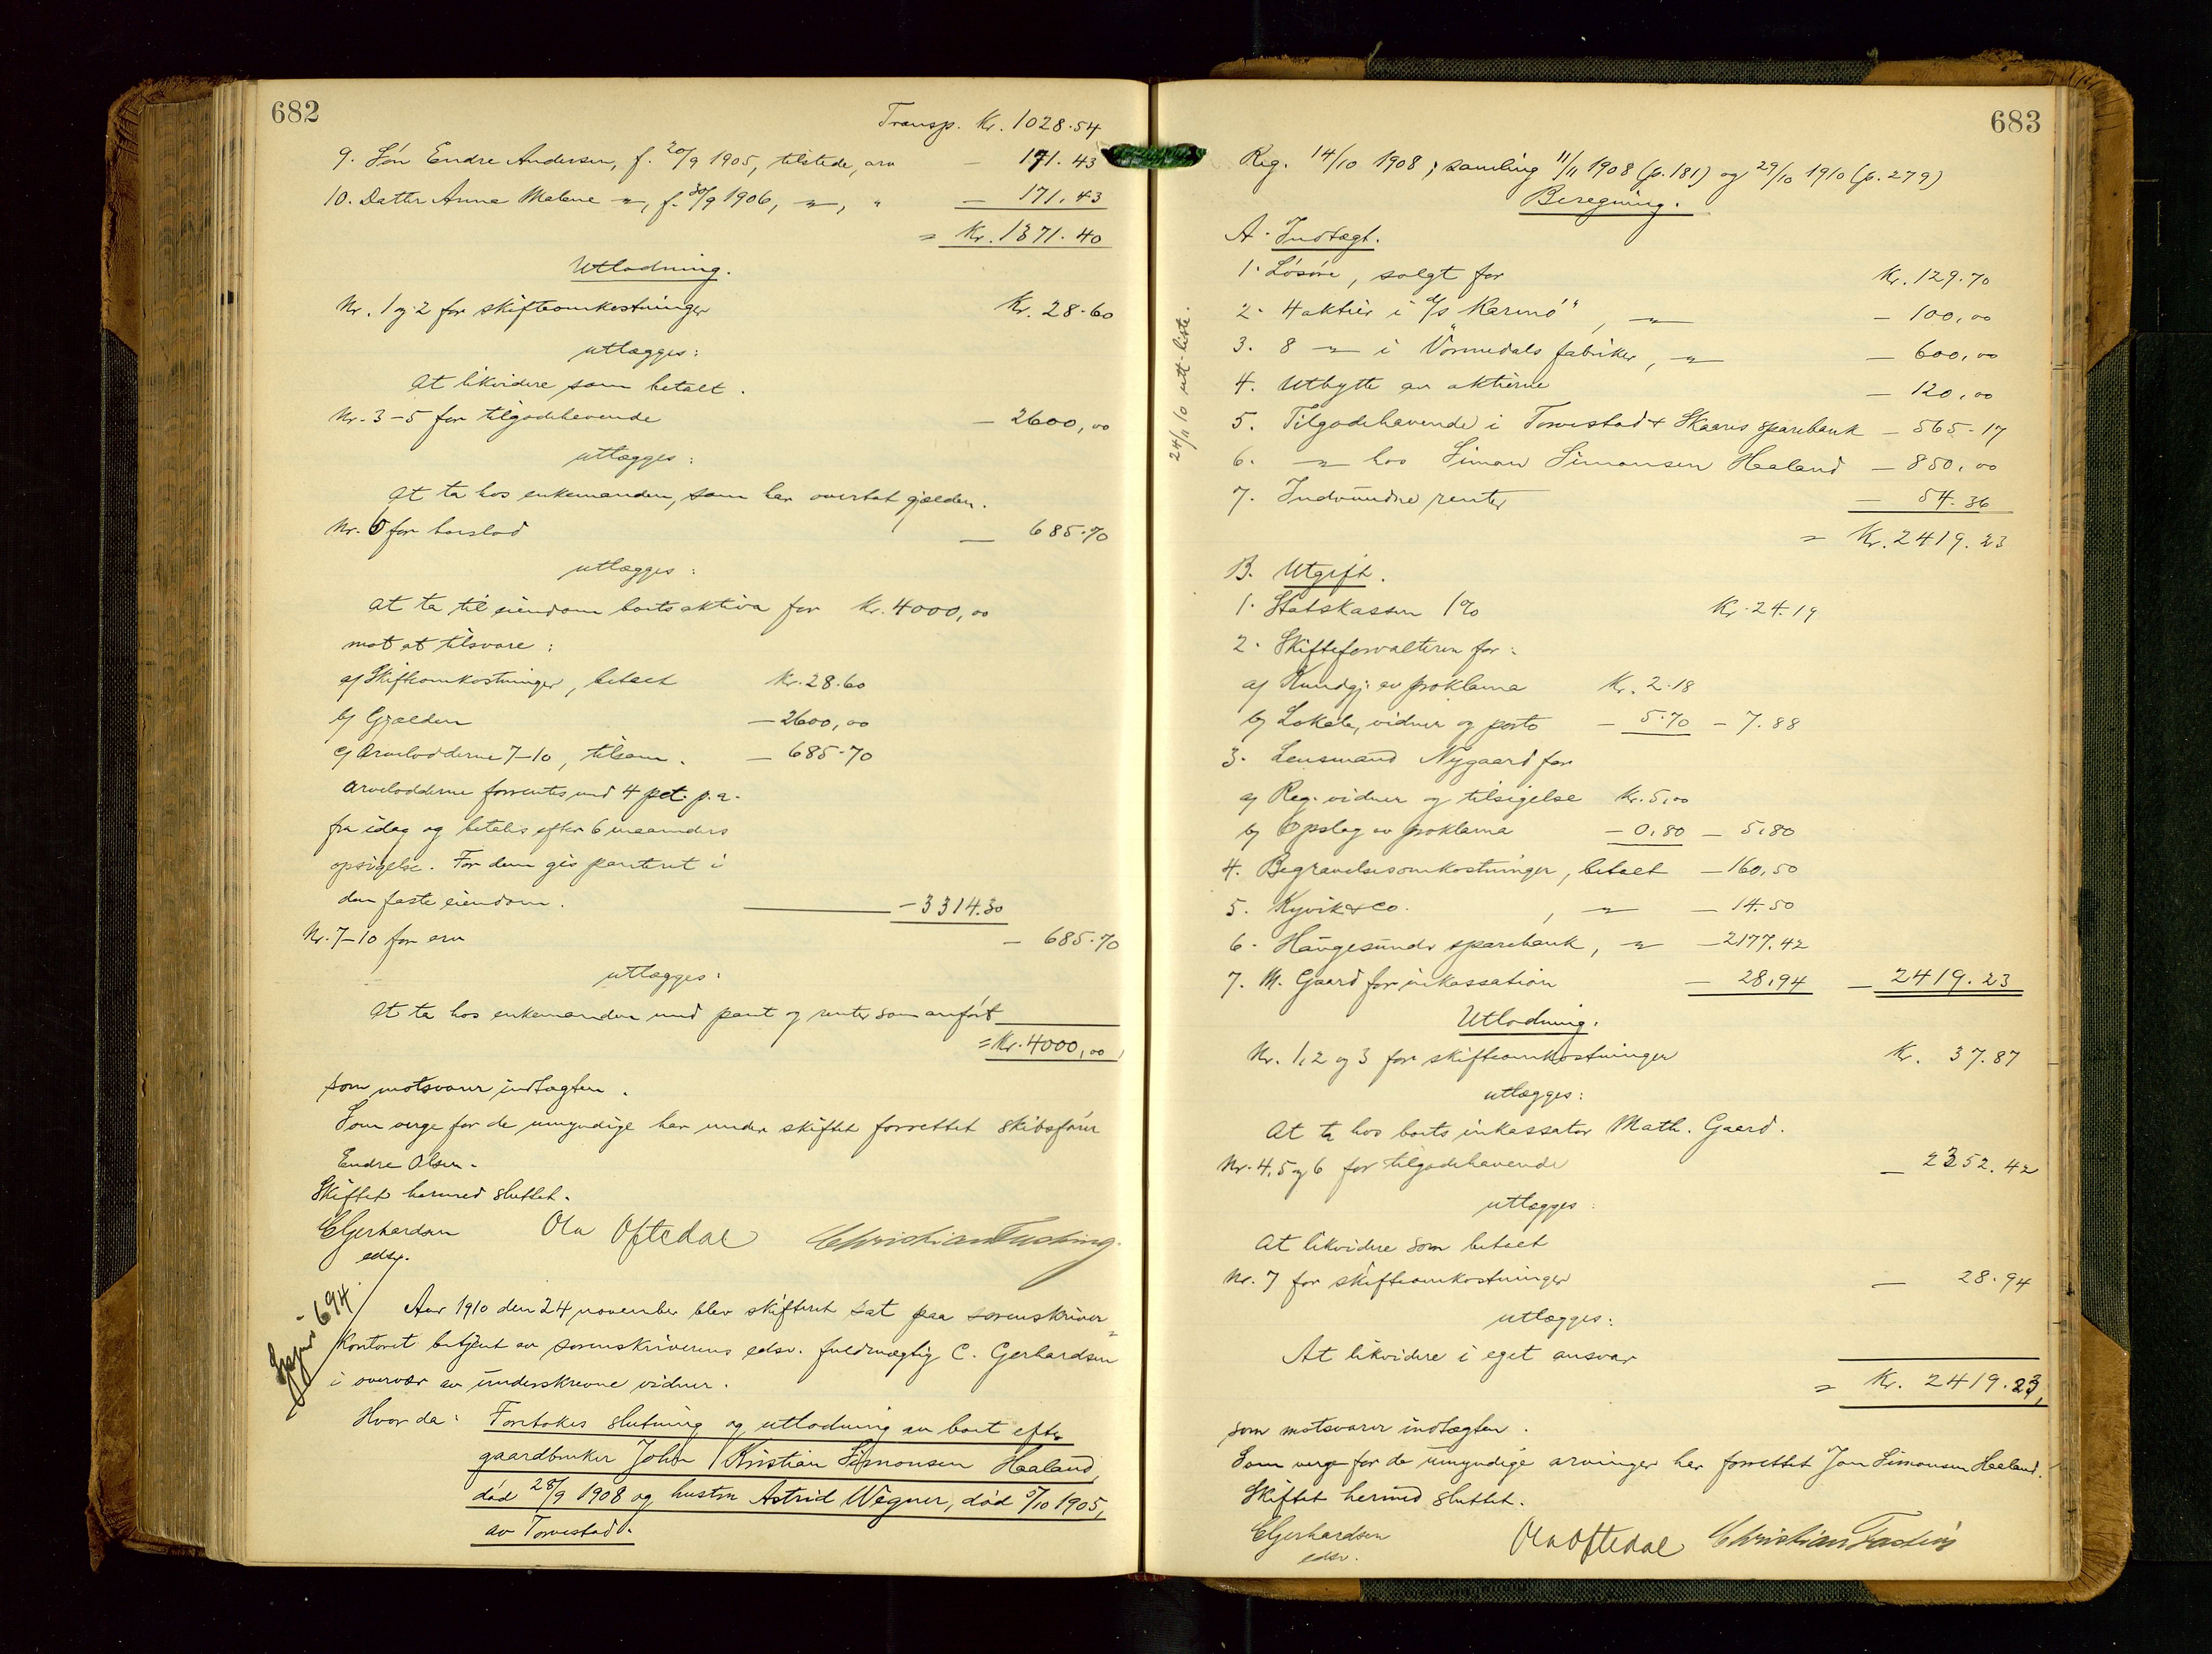 682
Transp. Kr. 1028.54
9. Søn Endre Andersen, f. 20/9 1905, tilstede, arv — 171.43
10. Datter Anna Malene —"—, f. 30/9 1906, —"—, " — 171.43
= Kr. 1371.40
Utlodning.
Nr. 1 og 2 for skifteomkostninger Kr. 28.60
utlægges:
At likvidere som betalt.
Nr. 3-5 for tilgodehavende — 2600,00
utlægges:
At ta hos enkemanden, som har overtat gjælden.
Nr. 6 for boeslod — 685.70
utlægges:
At ta til eiendom boets aktiva for Kr. 4000,00
mot at tilsvare:
a) Skifteomkostninger, betalt Kr. 28.60
b) Gjælden — 2600,00
c) Arvelodderne 7-10, tilsam. — 685.70
Arvelodderne forrentes med 4 pct. p.a.
fra idag og betales efter 6 maaneders
opsigelse. For dem gis panteret i
den faste eiendom. — 3314.30
Nr. 7-10 for arv — 685.70
utlægges:
At ta hos enkemanden med pant og renter som anført
= Kr. 4000,00,
som motsvarer indtægten.
Som verge for de umyndige har under skiftet forrettet skibsfører
Endre Olsen.
Skiftet hermed sluttet.
CGerhardsen Ola Oftedal Christian Fasting.
edsv.
694
Aar 1910 den 24 november blev skifteret sat paa sorenskriver=
kontoret betjent av sorenskriverens edsv. fuldmægtig C. Gerhardsen
i overvær av underskrevne vidner.
Hvor da: Foretokes slutning og utlodning av boet efter
gaardbruker John Kristian Simonsen Haaland,
død 28/9 1908 og hustru Astrid Wegner, død 5/10 1905,
av Torvestad.
683
Reg. 14/10 1908; samling 11/11 1908 (p. 181) og 29/10 1910 (p. 279)
Beregning.
24/11 10 utl. liste.
A. Indtægt.
1. Løsøre, solgt for Kr. 129.70
2. 4 aktier i d/s "Karmö", —"— — 100,00
3. 8 —"— i Vormedals fabriker, —"— — 600,00
4. Utbytte av aktierne — 120,00
5. Tilgodehavende i Torvestad & Skaares sparebank — 565.17
6. —"— hos Simon Simonsen Haaland — 850,00
7. Indvundne renter — 54.36
= Kr. 2419.23
B. Utgift.
1. Statskassen 1% Kr. 24.19
2. Skifteforvalteren for:
a) Kundgj. av proklama Kr. 2.18
b) Lokale, vidner og porto — 5.70 — 7.88
3. Lensmand Nygaard for
a) Reg. vidner og tilsigelse Kr. 5,00
b) Opslag av proklama — 0,80 — 5,80
4. Begravelsesomkostninger, betalt — 160,50
5. Kyvik & Co. , —"— — 14.50
6. Haugesunds sparebank, —"— — 2177.42
7. M. Gaard for inkassation — 28,94 — 2419.23
Utlodning.
Nr. 1, 2 og 3 for skifteomkostninger Kr. 37.87
utlægges:
At ta hos boets inkassator Math. Gaard.
Nr. 4, 5 og 6 for tilgodehavende — 2352.42
utlægges:
At likvidere som betalt
Nr. 7 for skifteomkostninger — 28.94
utlægges:
At likvidere i eget ansvar
= Kr. 2419.23,
som motsvarer indtægten.
Som verge for de umyndige arvinger har forrettet Jon Simonsen Haaland.
Skiftet hermed sluttet.
CGerhardsen Ola Oftedal Christian Fasting
edsv.